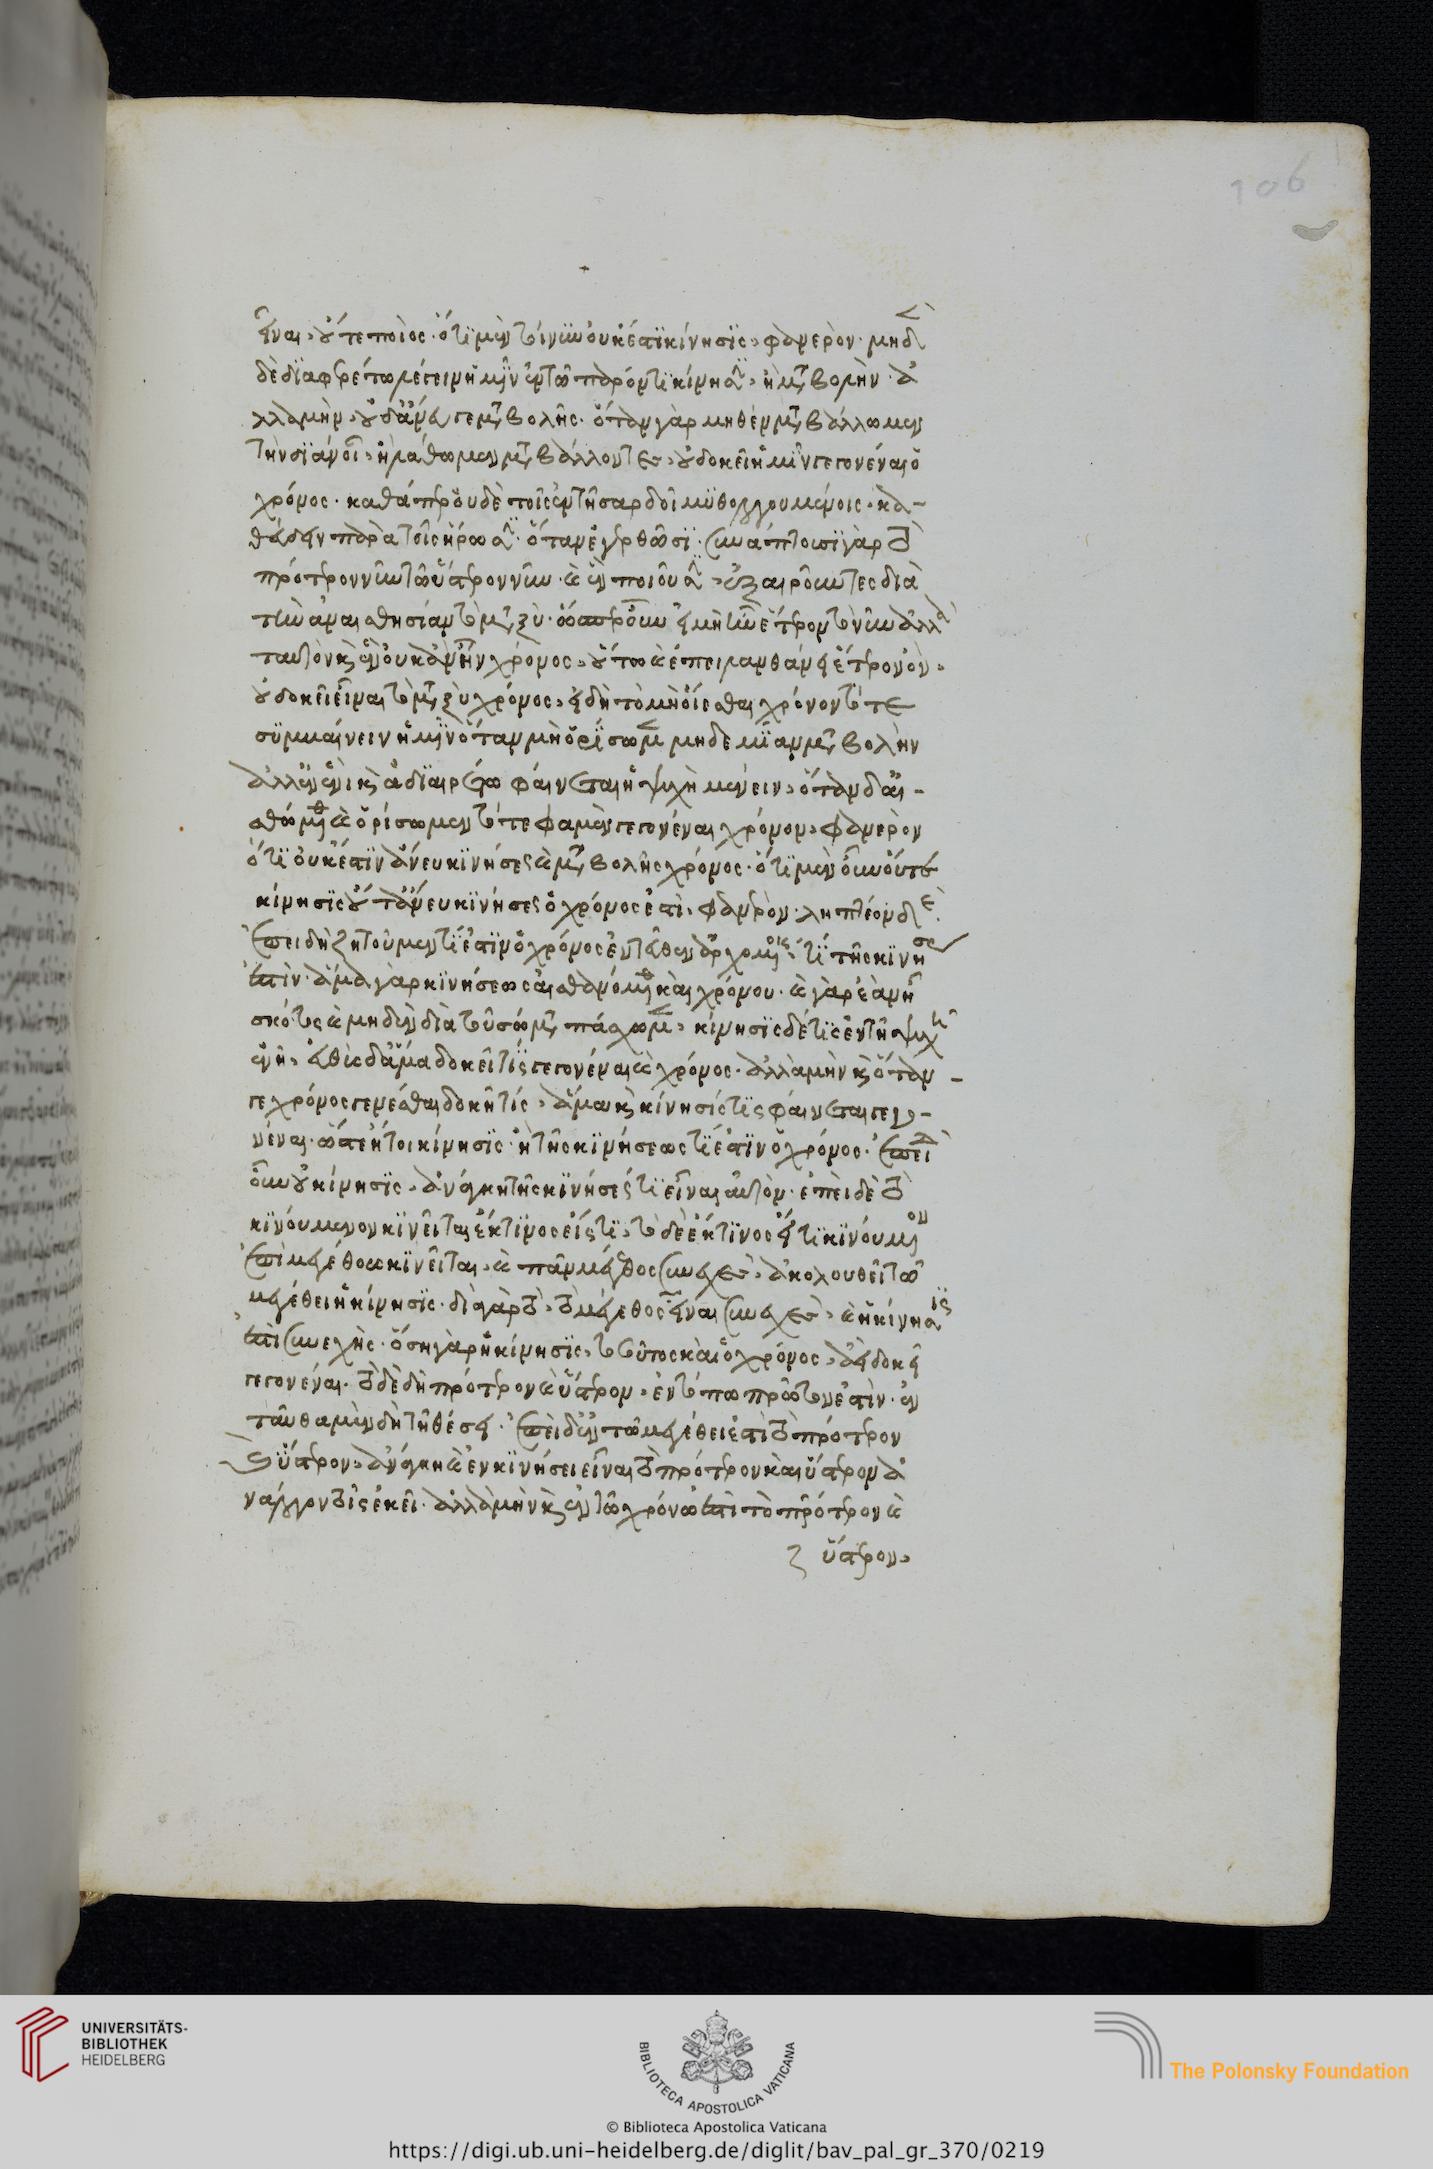 εἶναι, οὔτε ποιός. ὅτι μὲν τοίνυν οὐκ ἔστι κίνησις, φανερόν· μηδὲν
δὲ διαφερέτω λέγειν ἡμῖν ἐν τῶ παρόντι κίνησιν, ἢ μεταβολήν· ἀ
λλὰ μὴν, οὐδ' ἄνευ γε μεταβολῆς. ὅταν γὰρ μηθὲν μεταβάλλωμεν
τὴν διάνοιαν, ἢ λάθωμεν μεταβάλλοντες, οὐ δοκεῖ ἡμῖν γεγονέναι ὁ
χρόνος. καθάπερ οὐδὲ τοῖς ἐν τῆ σαρδοῖ μυθολογουμένοις, κα-
θεύδειν παρὰ τοῖς ἥρωσιν· ὅταν ἐγερθῶσι· συνάπτουσι γὰρ τὸ
πρότερον νῦν τῶ ὕστερον νῦν· καὶ ἓν ποιοῦσιν, ἐξαιροῦντες διὰ
τὴν ἀναισθησίαν τὸ μεταξύ· ὥσπερ οὖν εἰ μὴ ἦν ἕτερον τὸ νῦν ἀλλὰ
ταυτὸν καὶ ἓν οὐκ ἂν ἦν χρόνος, οὕτω καὶ ἐπεὶ λανθάνει ἕτερον ὂν,
οὐ δοκεῖ εἶναι τὸ μεταξὺ χρόνος, εἰ δὴ τὸ μὴ οἴεσθαι χρόνον τότε
συμβαίνειν ἡμῖν ὅταν μὴ ὁρίσωμεν μηδεμίαν μεταβολὴν
ἀλλ' ἐν ἑνὶ καὶ ἀδιαιρέτω φαίνεται ἡ ψυχὴ μένειν, ὅταν δ' αἰ-
σθώμεθα καὶ ὁρίσωμεν τότε φαμὲν γεγονέναι χρόνον, φανερὸν
ὅτι οὐκ ἔστιν ἄνευ κινήσεως καὶ μεταβολῆς χρόνος. ὅτι μὲν οὖν οὔτε
κίνησις οὔτ' ἄνευ κινήσεως ὁ χρόνος ἐστὶ, φανερόν. ληπτέον δὲ.
ἐπειδὴ ζητοῦμεν τί ἐστιν ὁ χρόνος ἐντεῦθεν ἀρχομένοις. τί τῆς κινήσεως
ἐστίν· ἅμα γὰρ κινήσεως αἰσθανόμεθα καὶ χρόνου. καὶ γὰρ ἐὰν ἦ
σκότος καὶ μηδὲν διὰ τοῦ σώματος πάσχωμεν, κίνησις δέ τις ἐν τῆ ψυχῆ
ἐνῆ, εὐθὺς δ' ἅμα δοκεῖ τίς γεγονέναι καὶ χρόνος. ἀλλὰ μὴν καὶ ὅταν -
γε χρόνος γενέσθαι δοκῆ τίς, ἅμα καὶ κίνησίς τις φαίνεται γεγο-
νέναι. ὥστε ἤτοι κίνησις. ἢ τῆς κινήσεως τί ἐστιν ὁ χρόνος. ἐπεὶ δ'
οὖν οὐ κίνησις, ἀνάγκη τῆς κινήσεώς τι εἶναι αὐτόν. ἐπεὶ δὲ τὸ
κινούμενον κινεῖται ἔκ τινος εἴς τι, τὸ δὲ ἔκ τινος εἴς τι κινούμενον
ἐπὶ μεγέθους κινεῖται, καὶ πᾶν μέγεθος συνεχὲς, ἀκολουθεῖ τῶ
μεγέθει ἡ κίνησις. διὰ γὰρ τὸ, τὸ μέγεθος εἶναι συνεχὲς, καὶ ἡ κίνησις
ἐστὶ συνεχής. ὅση γὰρ ἡ κίνησις, τοσοῦτος καὶ ὁ χρόνος, ἀεὶ δοκεῖ
γεγονέναι. τὸ δὲ δὴ πρότερον καὶ ὕστερον, ἐν τόπω πρῶτόν ἐστιν. ἐν
ταῦθα μὲν δὴ τῆ θέσει. ἐπεὶ δ' ἐν τῶ μεγέθει ἐστὶ τὸ πρότερον
καὶ ὕστερον, ἀνάγκη καὶ ἐν κινήσει εἶναι τὸ πρότερον καὶ ὕστερον ἀ
νάλογον τοῖς ἐκεῖ. ἀλλὰ μὴν καὶ ἐν τῶ χρόνω ἐστὶ τὸ πρότερον καὶ
ὕστερον,
106
UNIVERSITÄTS-
BIBLIOTHEK
HEIDELBERG
BIBLIOTECA APOSTOLICA VATICANA
© Biblioteca Apostolica Vaticana
The Polonsky Foundation
https://digi.ub.uni-heidelberg.de/diglit/bav_pal_gr_370/0219